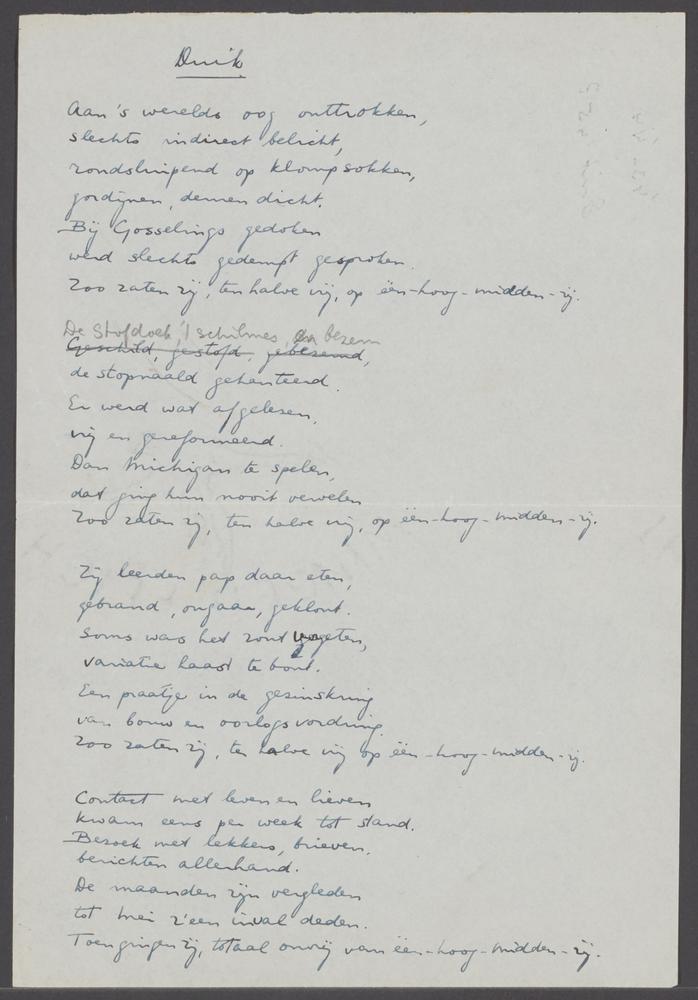 Duik
Aan 's werelds oog onttrokken,
slechts indirect belicht,
rondsluipend op klompsokken,
gordijnen, deuren dicht.
Bij Gosselings gedoken
werd slechts gedempt gesproken.
Zoo zaten zij, ten halve vrij, op één-hoog-midden-zij.
De stofdoek, 't schilmes, en bezem
Geschild, gestofd, gebezemd,
de stopnaald gehanteerd.
Er werd wat afgelezen,
vrij en gereformeerd.
Dan Michigan te spelen,
dat ging hun nooit vervelen
Zoo zaten zij, ten halve vrij, op één-hoog-midden-zij.
Zij leerden pap daar eten,
gebrand, ongaar, geklont.
Soms was het zout vergeten,
variatie haast te bont.
Een praatje in de gezinskring
van bouw en oorlogsvordring.
Zoo zaten zij, ten halve vrij op één-hoog-midden-zij.
Contact met leven en lieven
kwam eens per week tot stand.
Bezoek met lekkers, brieven,
berichten allerhand.
De maanden zijn vergleden
tot Mei z'een inval deden.
Toen gingen zij, totaal onvrij van één-hoog-midden-zij.